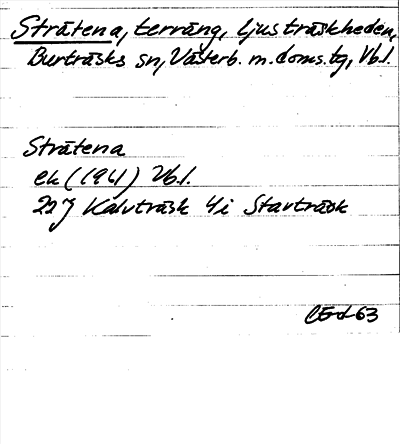 Stråtena, terräng, Ljusträskheden,
Burträsks sn, Västerb. m. doms. tg, Vb.l.
Stråtena
ek (1961) Vb.l.
22J Kalvträsk 4i Stavträsk
63